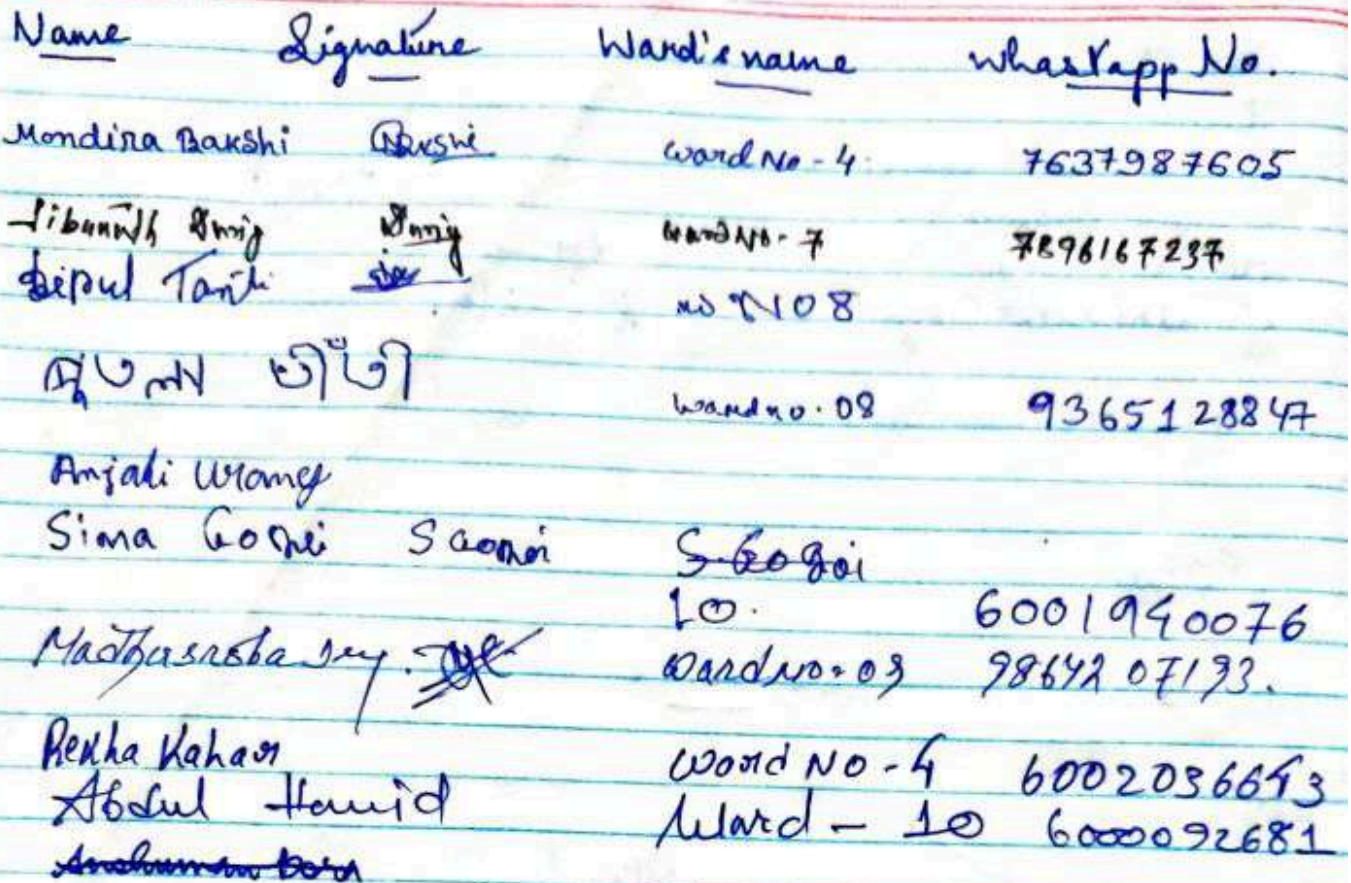 Name Signature Ward's name WhastappNo.
Mondira Bakshi Bakshi ward No - 4. 7637987605
ward No - 7 7896167237
Bipul Tanti no NO 8
ward no. 08 9365128847
Anjali Urang
Sima Gogoi S Gogoi S. Gogoi
10. 6001940076
Madhusraba Dey. ward no - 09 9864207193.
Rekha Kahar Word NO - 4 6002036643
Abdul Hamid Ward - 10 6000092681